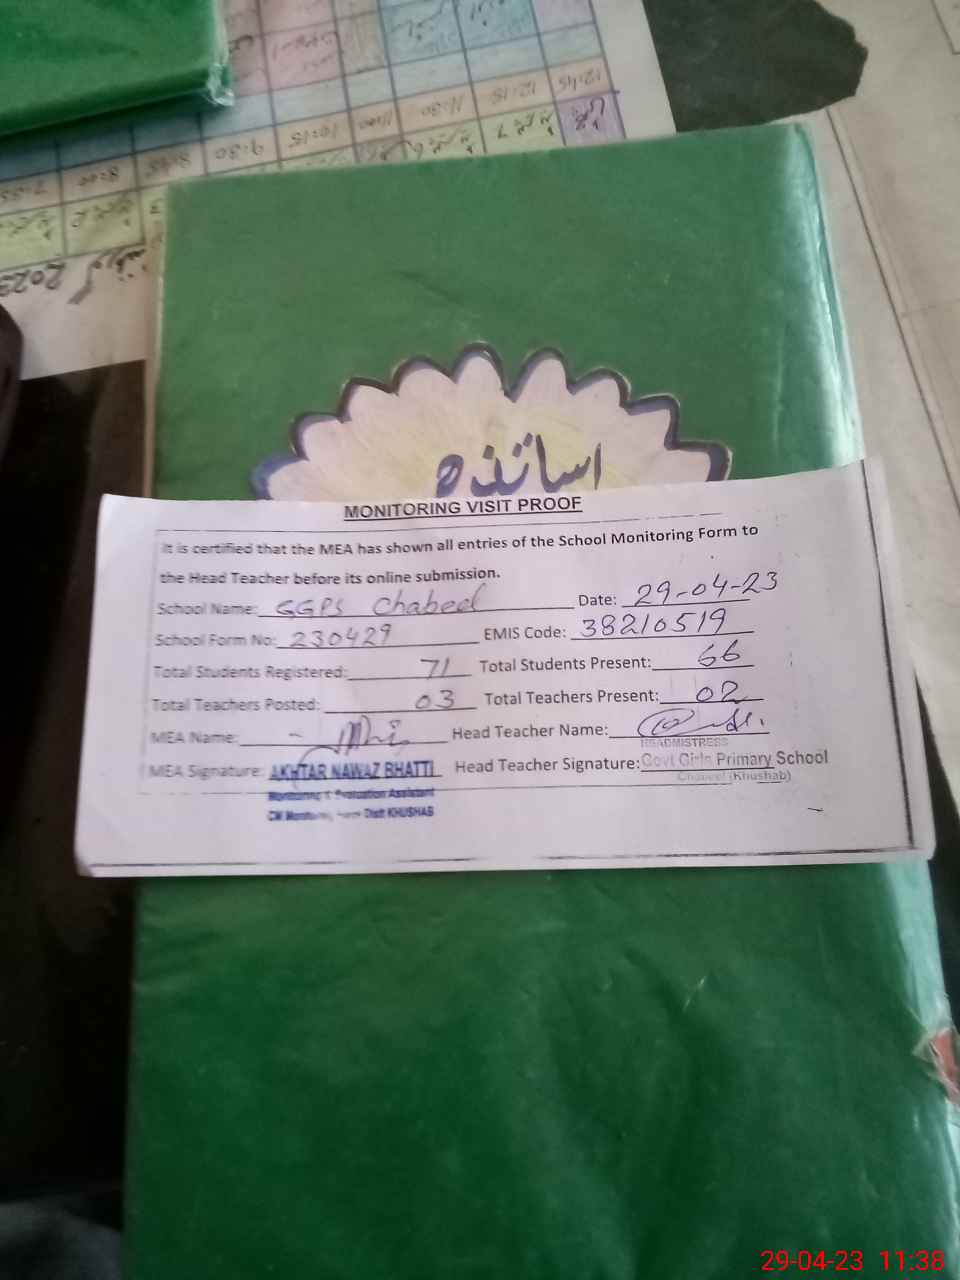 12:45
12:15
11:30
11:00
10:15
9:30
8:45
8:00
7:55
2023
اساتذہ
MONITORING VISIT PROOF
It is certified that the MEA has shown all entries of the School Monitoring Form to
the Head Teacher before its online submission.
School Name: GGPS Chabeel Date: 29-04-23
School Form No: 230429 EMIS Code: 38210519
Total Students Registered: 71 Total Students Present: 66
Total Teachers Posted: 03 Total Teachers Present: 02
MEA Name: Head Teacher Name:
HEADMISTRESS
MEA Signature: AKHTAR NAWAZ BHATTI Head Teacher Signature: Govt Girls Primary School
Chabeel (Khushab)
Monitoring & Evaluation Assistant
CM Monitoring Force Distt KHUSHAB
29-04-23 11:38